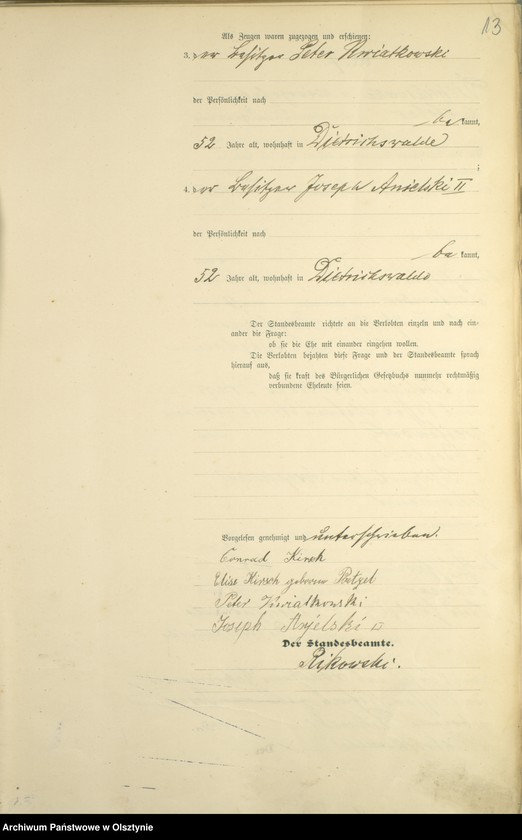 13
Als Zeugen waren zugezogen und erschienen:
3. der Besitzer Peter Kwiatkowski
der Persönlichkeit nach
bekannt,
52 Jahre alt, wohnhaft in Dietrichswalde
;
4. der Besitzer Joseph Anielski II
der Persönlichkeit nach
bekannt,
52 Jahre alt, wohnhaft in Dietrichswalde
Der Standesbeamte richtete an die Verlobten einzeln und nach ein-
ander die Frage:
ob sie die Ehe mit einander eingehen wollen.
Die Verlobten bejahten diese Frage und der Standesbeamte sprach
hierauf aus,
daß sie kraft des Bürgerlichen Gesetzbuchs nunmehr rechtmäßig
verbundene Eheleute seien.
Vorgelesen, genehmigt und unterschrieben.
Conrad Kirsch
Elise Kirsch geborene
Peter Kwiatkowski
Joseph
Der Standesbeamte.
Rikowski.
Archiwum Państwowe w Olsztynie